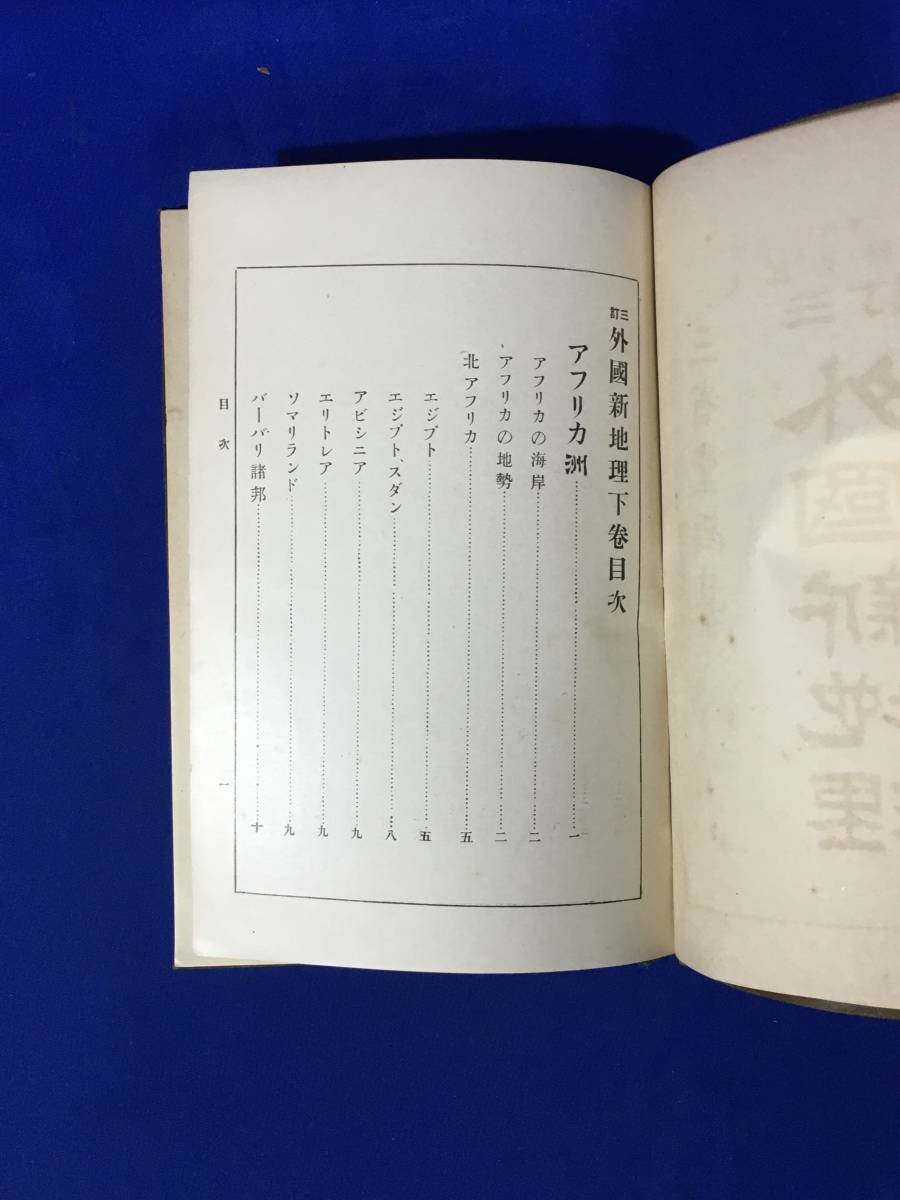 三訂 外國新地理下卷目次
アフリカ洲……一
アフリカの海岸……二
アフリカの地勢……二
北アフリカ……五
エジプト……五
エジプト、スダン……八
アビシニア……九
エリトレア……九
ソマリランド……九
バーバリ諸邦……十
目次 一